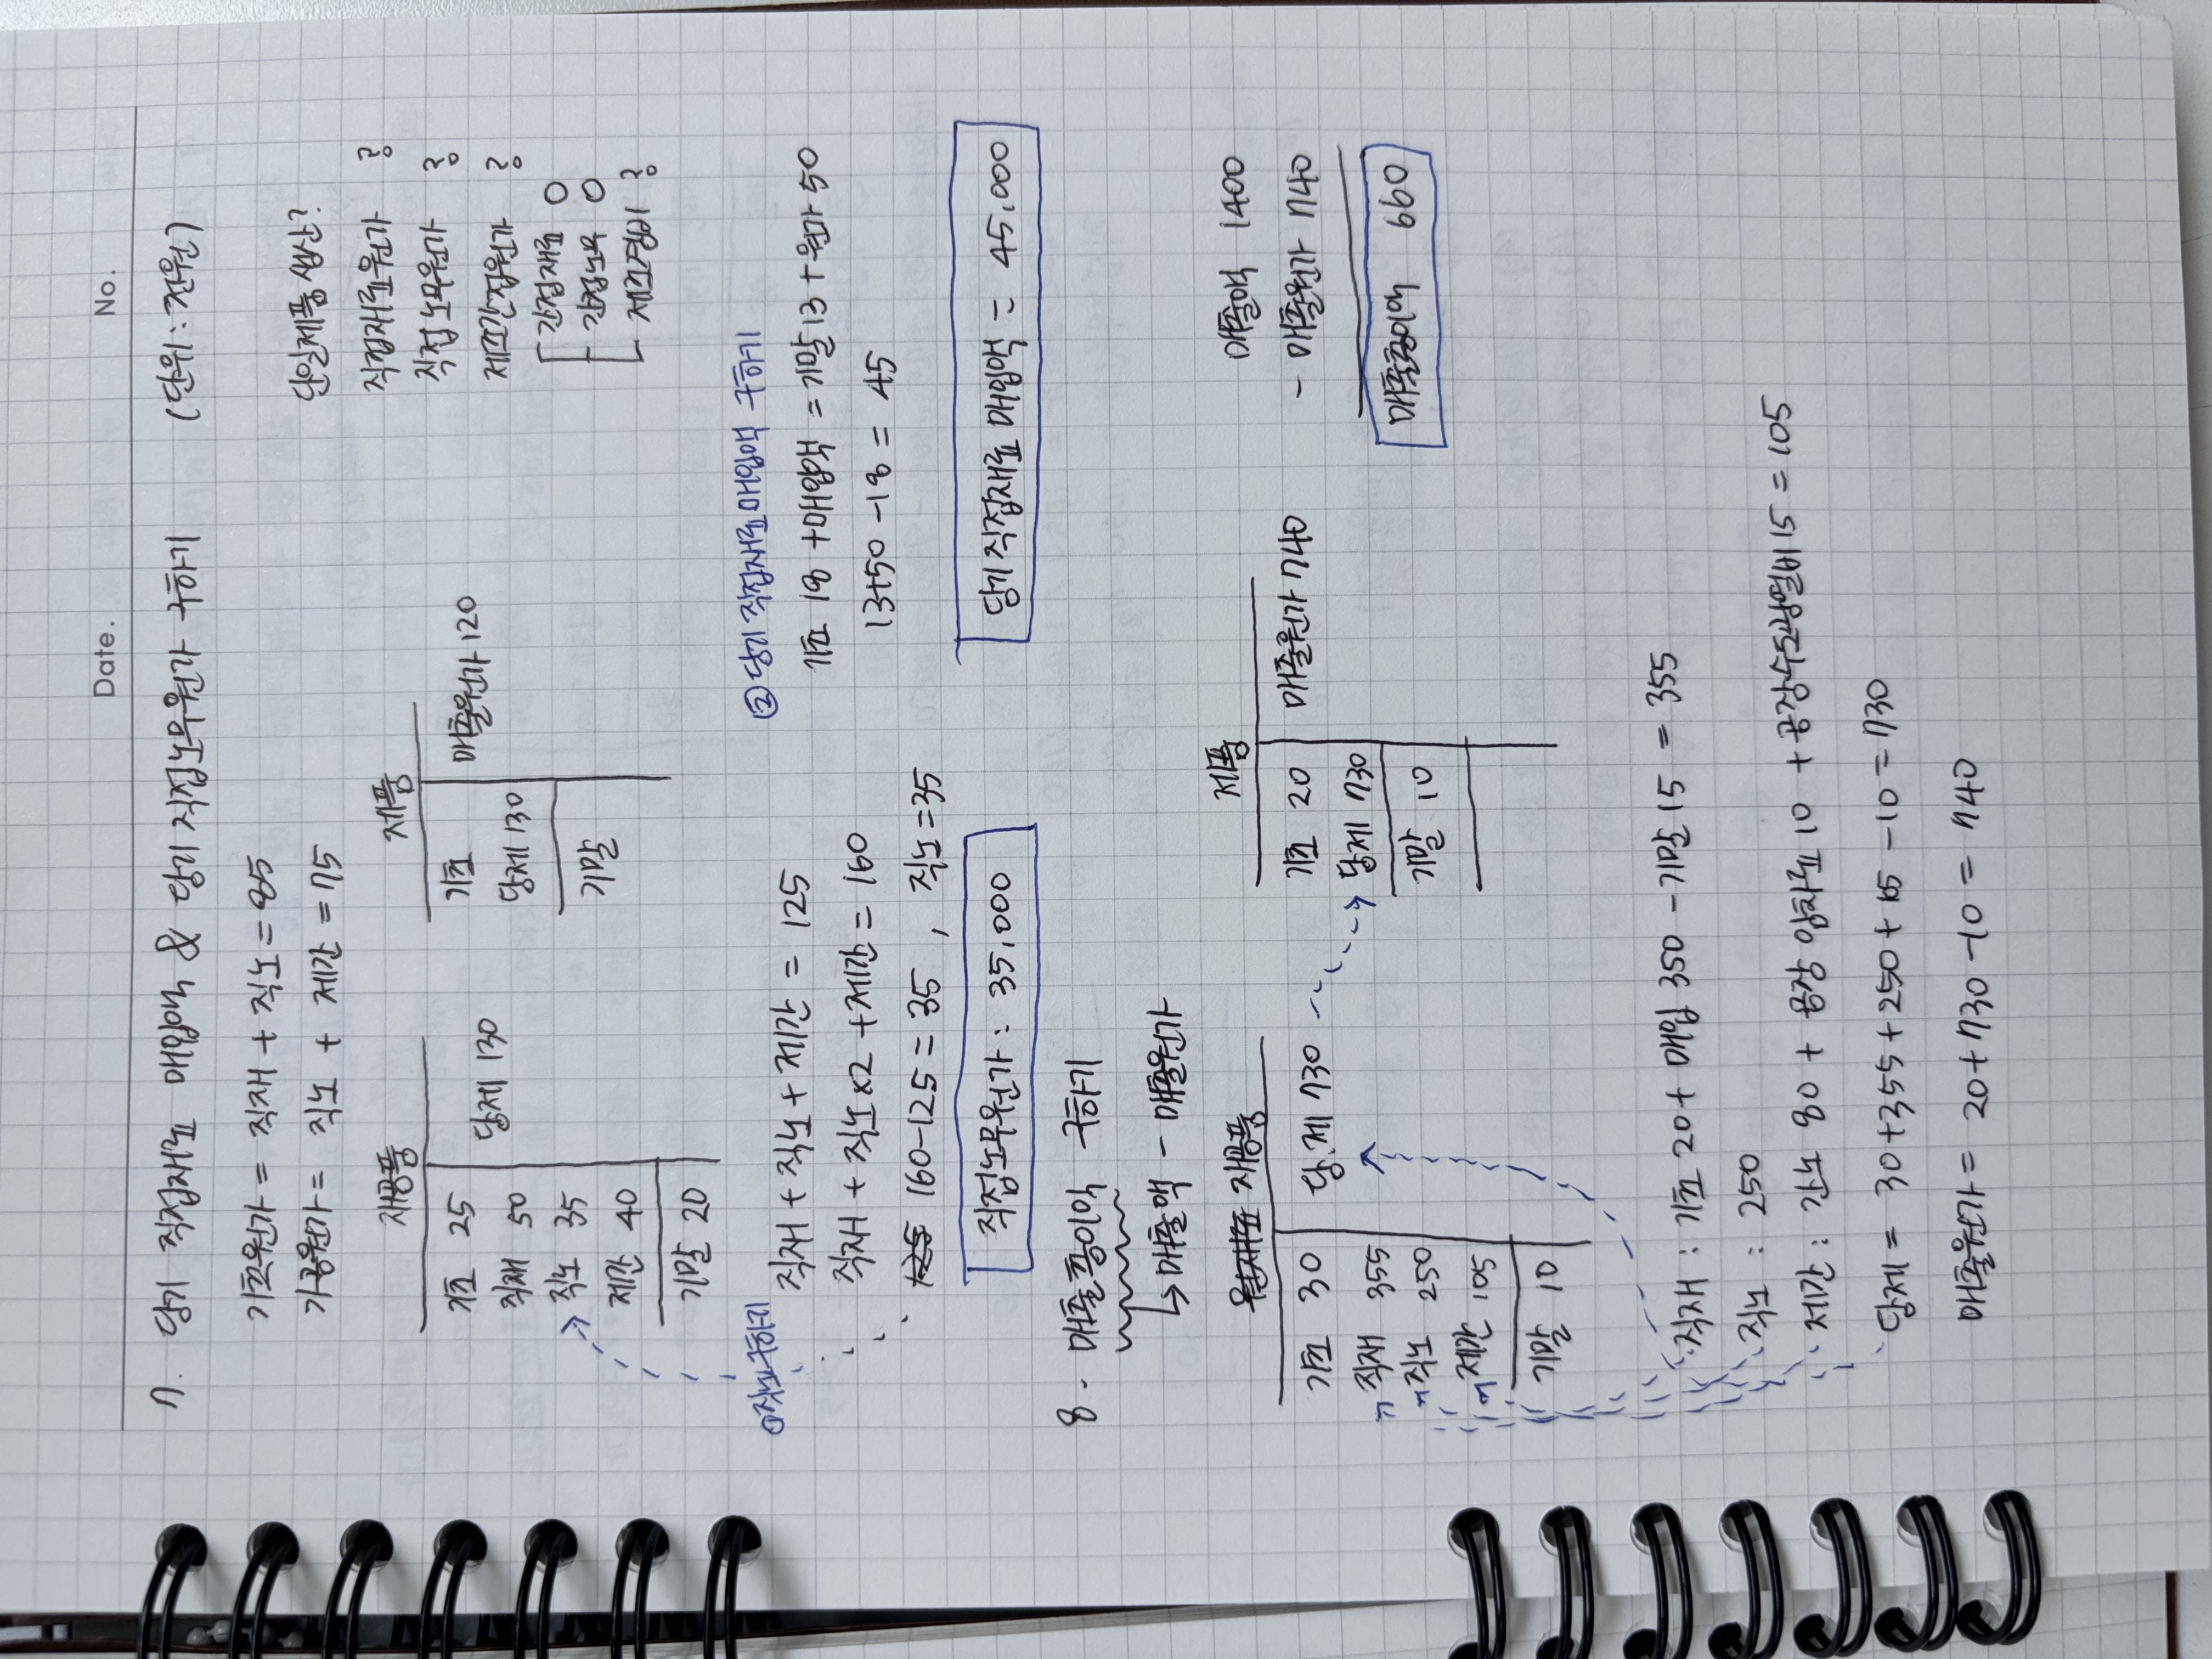 Date. No.
7. 당기 직접재료 매입액 & 당기 직접노무원가 구하기 (단위: 천원)
기초원가 = 직재 + 직노 = 85
가공원가 = 직노 + 제간 = 75
단일제품 생산?
직접재료원가 ?
직접노무원가 ?
제조간접원가 ?
간접재료 0
간접노무 0
제조경비 ?
재공품
기초 25
당제 130
직재 50
직노 35
제간 40
기말 20
제품
기초
매출원가 120
당제 130
기말
①직노구하기
직재 + 직노 + 제간 = 125
직재 + 직노×2 + 제간 = 160
125 160-125 = 35 , 직노=35
직접노무원가 : 35,000
② 당기 직접재료매입액 구하기
기초 18 + 매입액 = 기말 13 + 원가 50
13+50-18 = 45
당기 직접재료 매입액 = 45,000
8. 매출총이익 구하기
매출액 - 매출원가
원재료 재공품
기초 30
당.제 730
직재 355
직노 250
제간 105
기말 10
제품
기초 20
매출원가 740
당제 730
기말 10
매출액 1400
- 매출원가 740
매출총이익 660
직재 : 기초 20 + 매입 350 - 기말 15 = 355
직노 : 250
제간 : 간노 80 + 공장 임차료 10 + 공장수도광열비 15 = 105
당제 = 30+355+250+105-10 = 730
매출원가 = 20+730-10 = 740